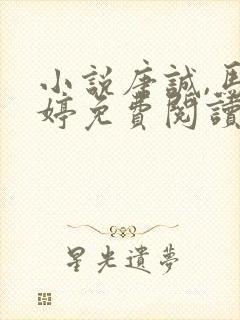 小說唐誠,馬
婷免費閱讀
星光遺夢